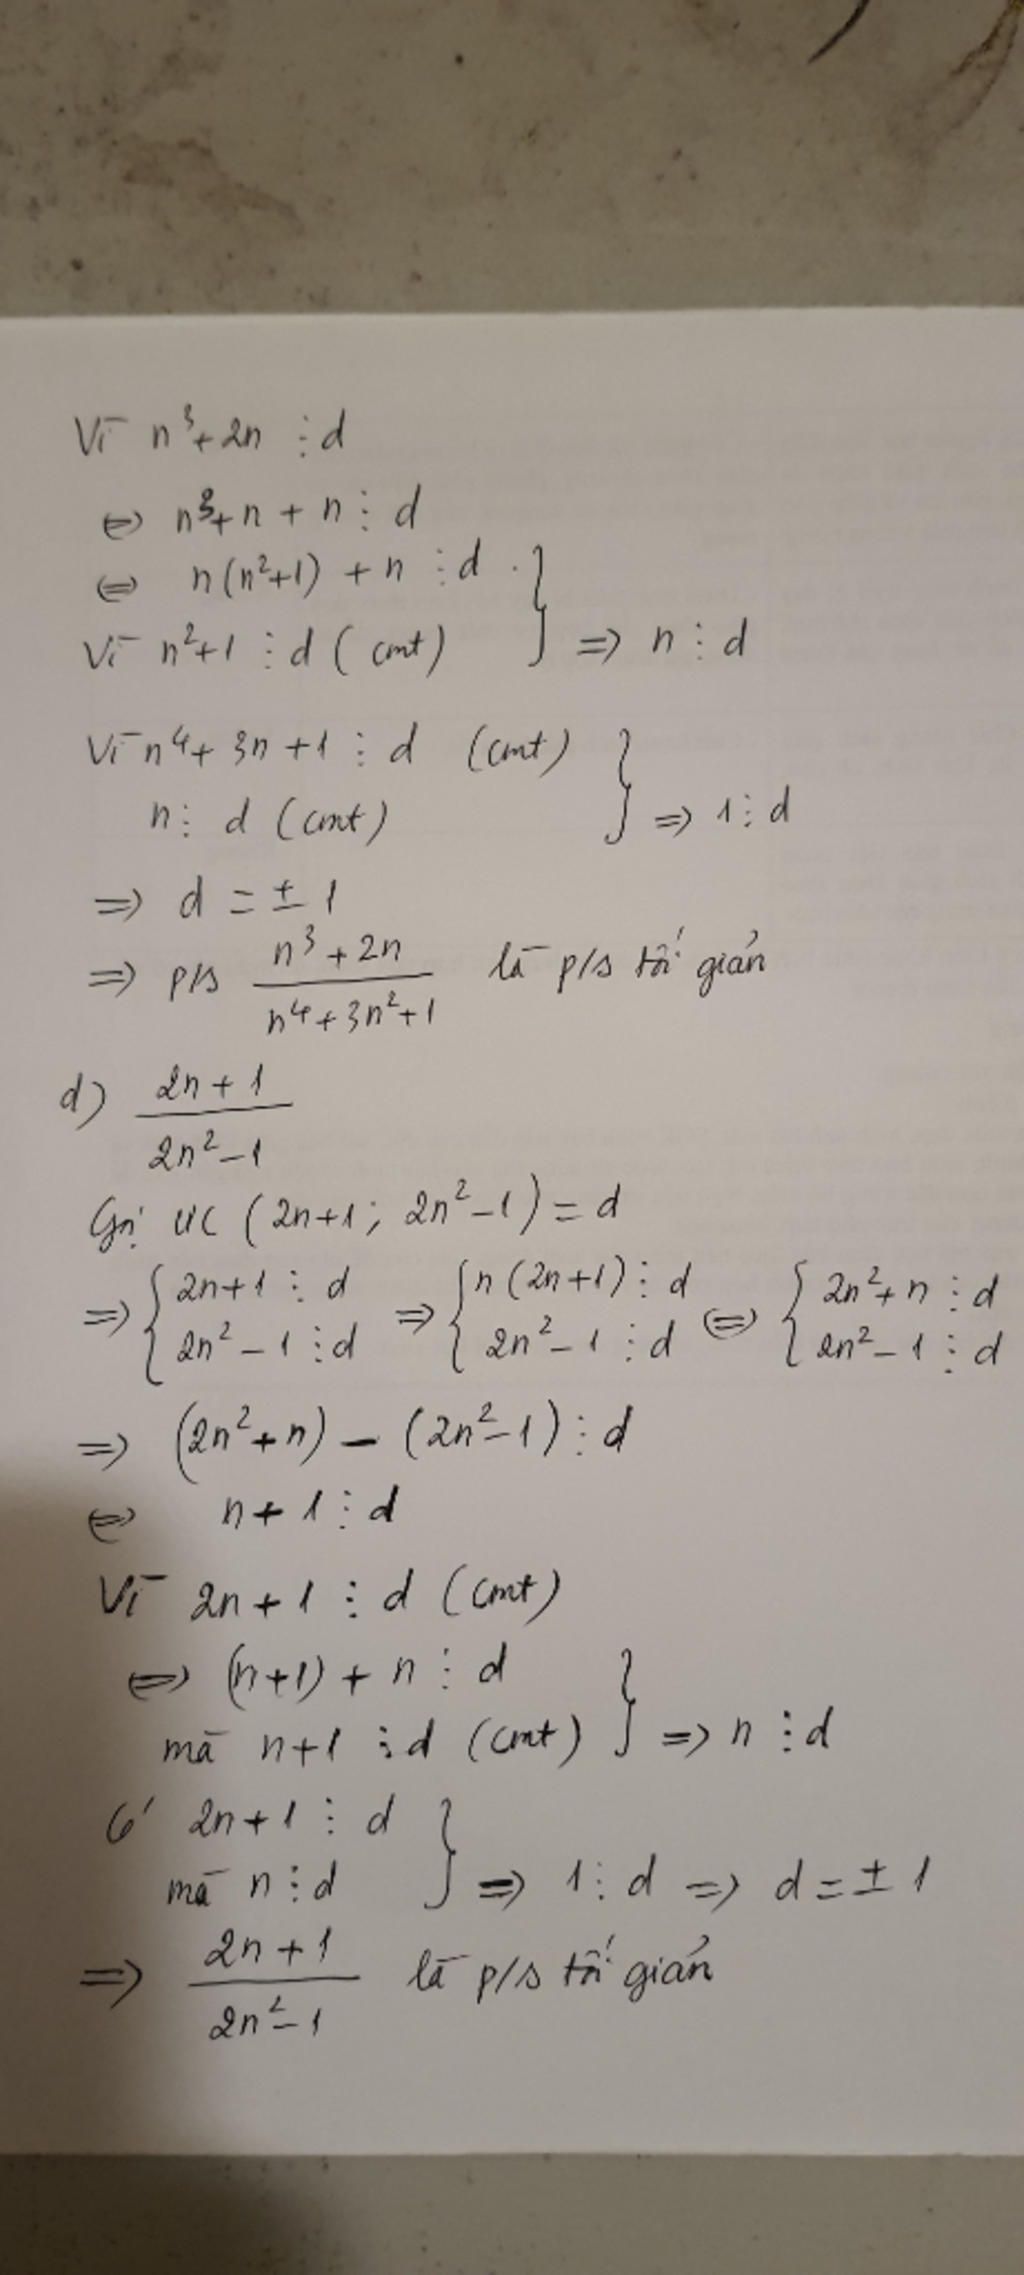 Vì n³+2n ⋮ d
⇔ n³+n + n ⋮ d
⇔ n(n²+1) + n ⋮ d
Vì n²+1 ⋮ d (cmt) } ⇒ n ⋮ d
Vì n⁴+ 3n +1 ⋮ d (cmt)
n ⋮ d (cmt) } ⇒ 1 ⋮ d
⇒ d = ± 1
⇒ p/s (n³+2n)/(n⁴+3n²+1) là p/s tối giản
d) (2n+1)/(2n²-1)
Gọi ƯC (2n+1; 2n²-1) = d
⇒ { 2n+1 ⋮ d ; 2n²-1 ⋮ d ⇒ { n(2n+1) ⋮ d ; 2n²-1 ⋮ d ⇔ { 2n²+n ⋮ d ; 2n²-1 ⋮ d
⇒ (2n²+n) - (2n²-1) ⋮ d
⇔ n+1 ⋮ d
Vì 2n+1 ⋮ d (cmt)
⇔ (n+1) + n ⋮ d
mà n+1 ⋮ d (cmt) } ⇒ n ⋮ d
Có 2n+1 ⋮ d
mà n ⋮ d } ⇒ 1 ⋮ d ⇒ d = ± 1
⇒ (2n+1)/(2n²-1) là p/s tối giản